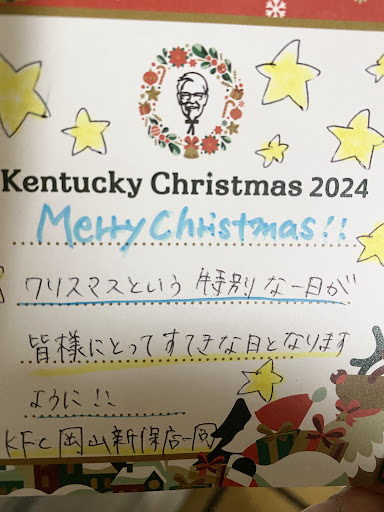 Kentucky Christmas 2024
Merry Christmas!!
クリスマスという特別な一日が
皆様にとってすてきな日となります
ように!!
KFC 岡山新保店一同